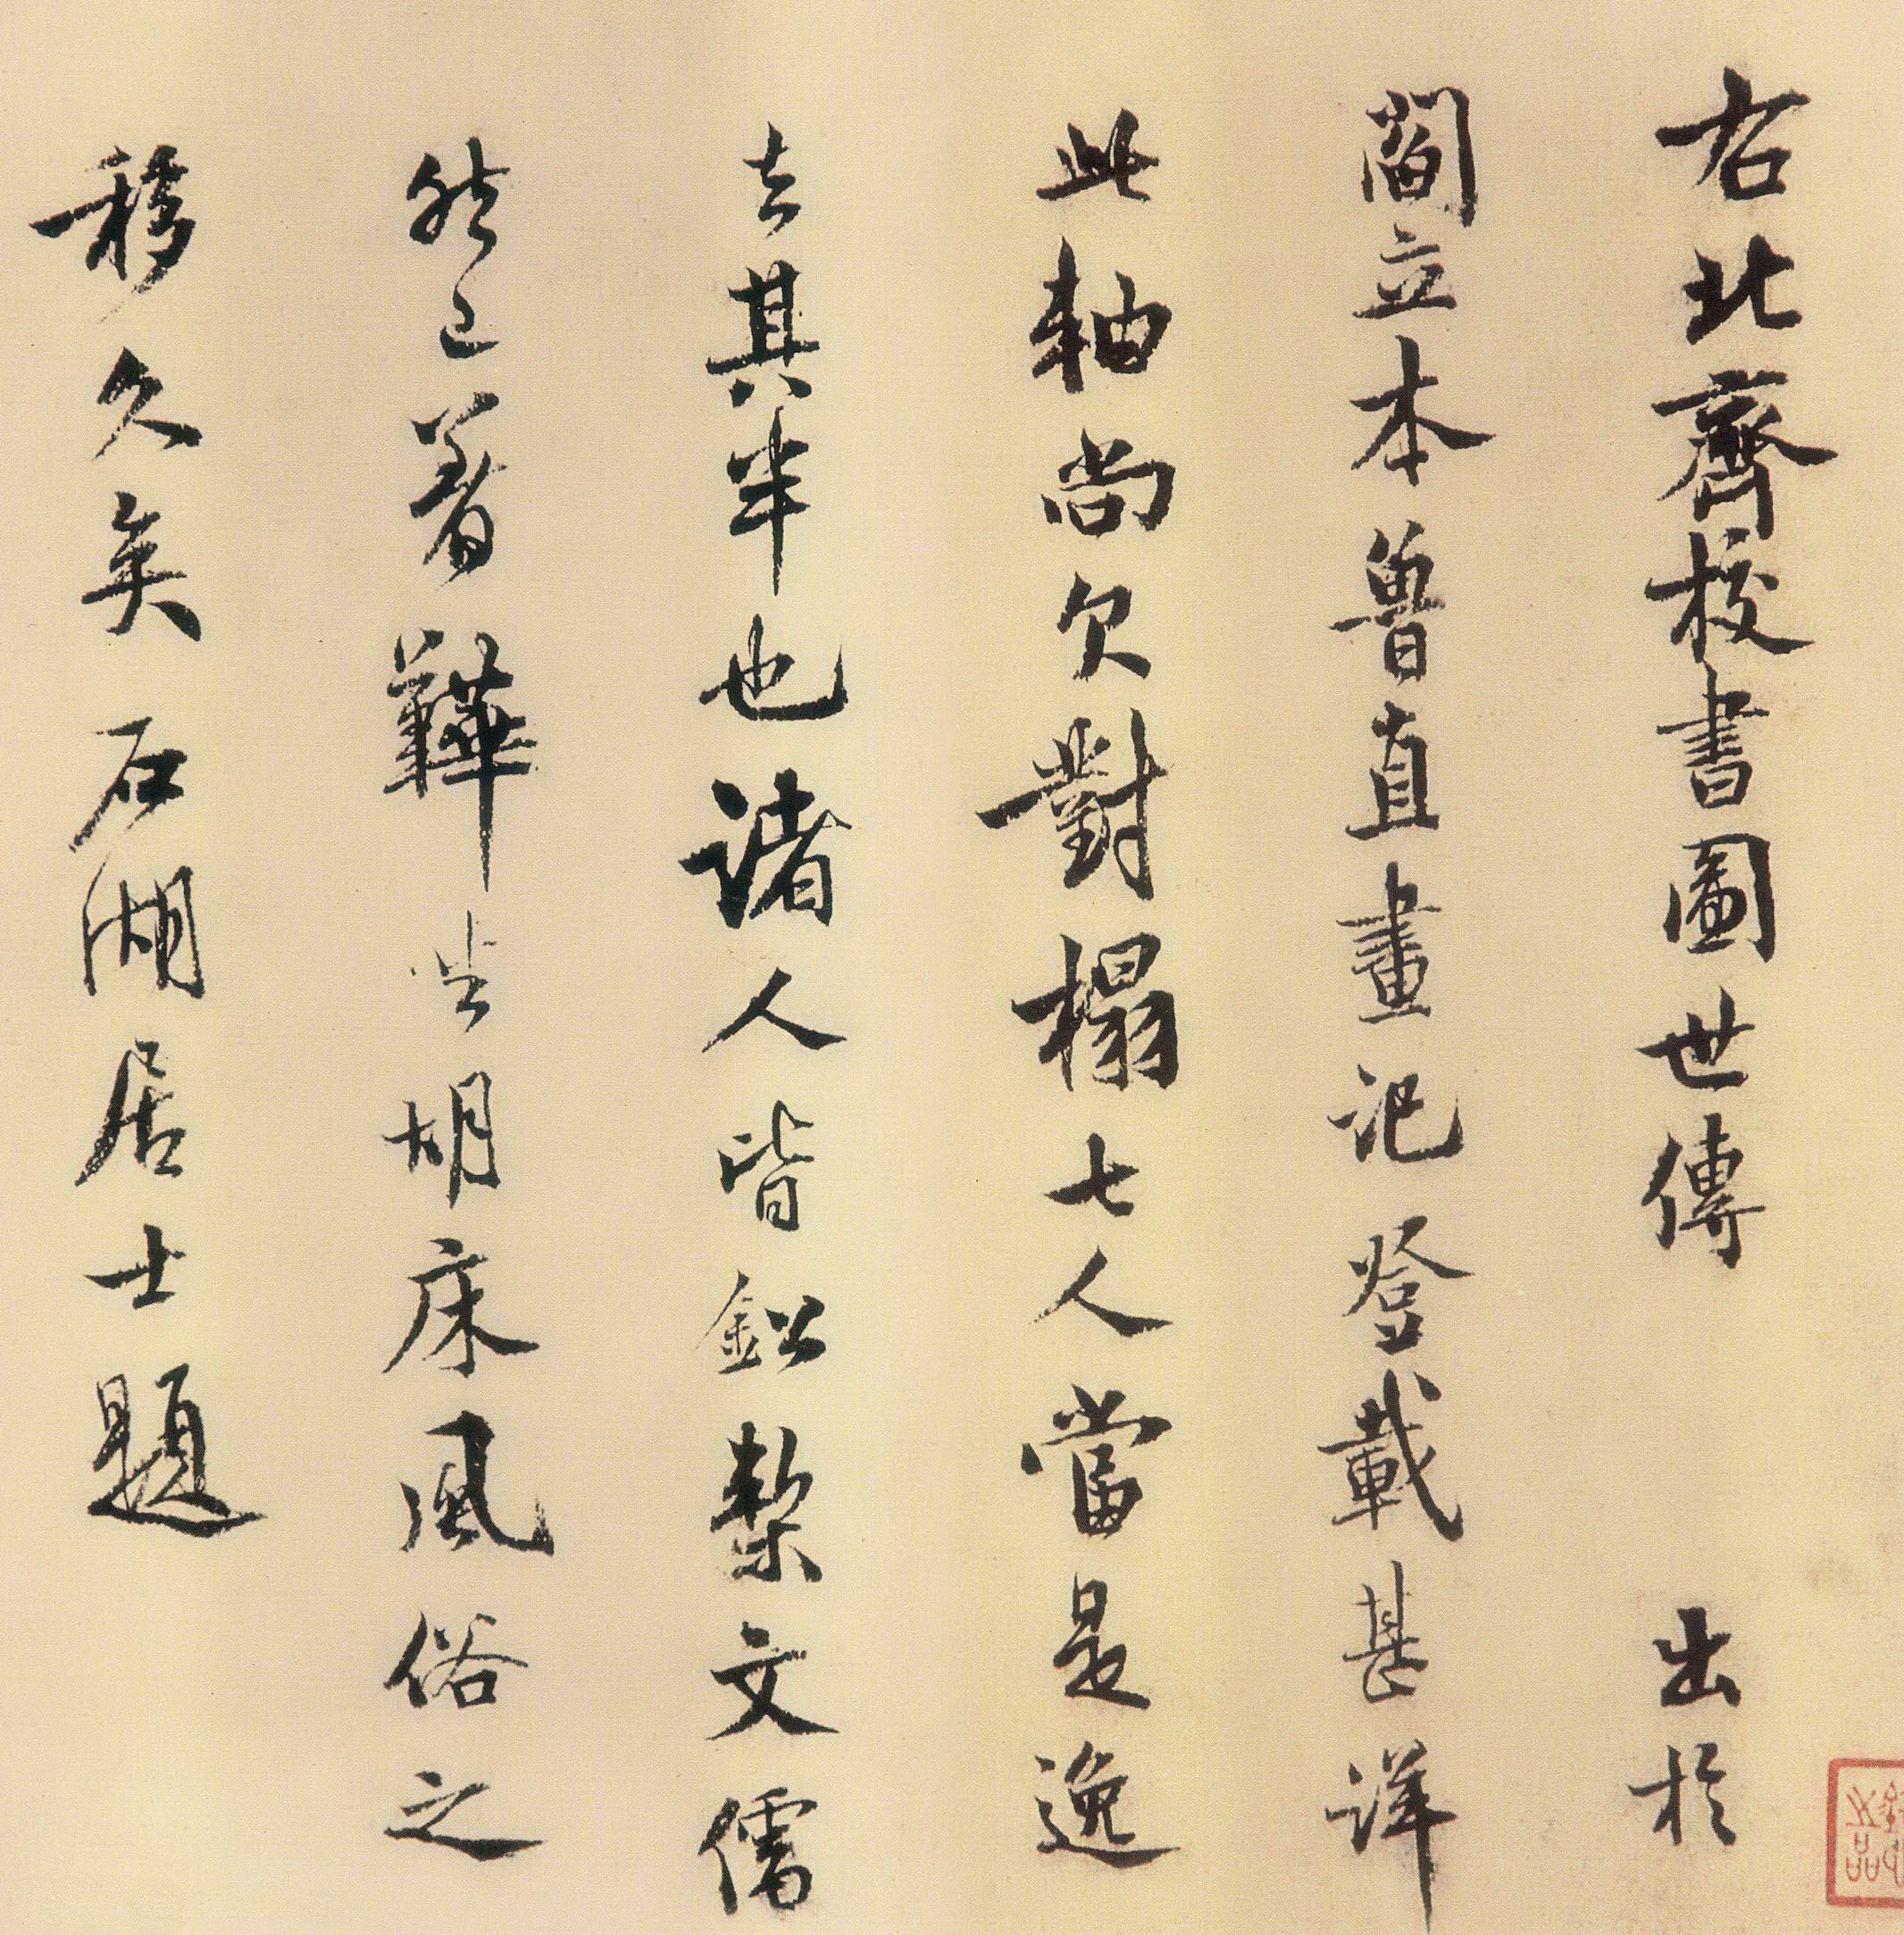 右北齊校書圖世傳出於
閻立本魯直畫記登載甚詳
此軸尚欠對榻七人當是逸
去其半也諸人皆鈆槧文儒
然已著鞾坐胡床風俗之
移久矣石湖居士題